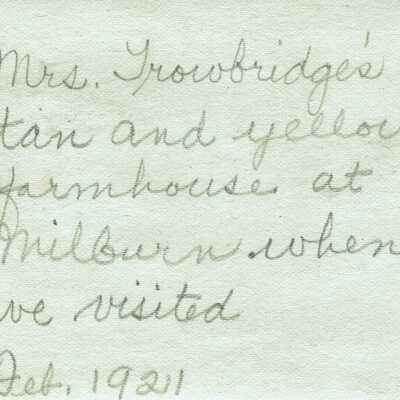 Mrs. Trowbridge's
tan and yellow
farmhouse at
Milburn when
we visited
Feb. 1921